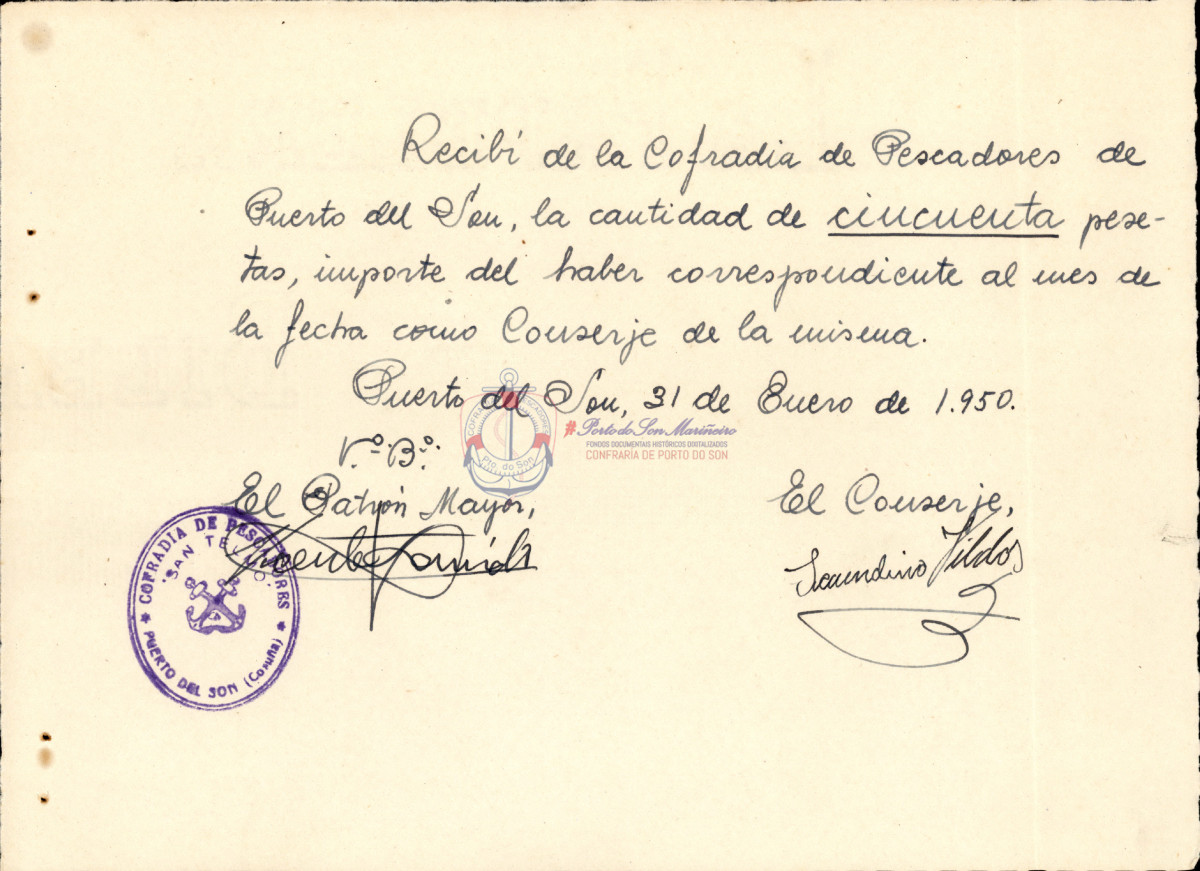 Recibí de la Cofradia de Pescadores de
Puerto del Son, la cantidad de cincuenta pese-
tas, importe del haber correspondiente al mes de
la fecha como Conserje de la misma.
Puerto del Son, 31 de Enero de 1.950.
COFRADÍA PESCADORES
Pto. do Son
#Porto do Son Mariñeiro
FONDOS DOCUMENTAIS HISTÓRICOS DIXITALIZADOS
CONFRARÍA DE PORTO DO SON
V.º B.º
El Patrón Mayor,
El Conserje,
Vicente
Secundino Vildos
★ COFRADIA DE PESCADORES ★
"SAN TELMO"
PUERTO DEL SON (Coruña)